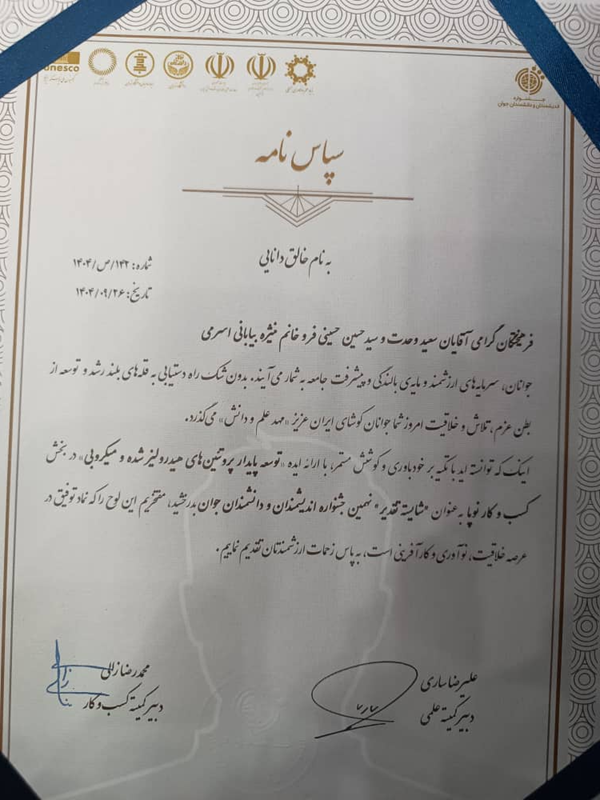 unesco
جشنواره
اندیشمندان و دانشمندان جوان
سپاس نامه
به نام خالق دانایی
شماره: ۱۴۲/ص/۱۴۰۴
تاریخ: ۱۴۰۴/۰۹/۲۶
فرهیختگان گرامی آقایان سعید وحدت و سید حسین حسینی فر و خانم منیژه بیابانی اسرمی
جوانان، سرمایه‌های ارزشمند و مایه‌ی بالندگی و پیشرفت جامعه به شمار می‌آیند. بدون شک راه دستیابی به قله‌های بلند رشد و توسعه از
بطن عزم، تلاش و خلاقیت امروز شما جوانان کوشای ایران عزیز «مهد علم و دانش» می‌گذرد.
اینک که توانسته اید با تکیه بر خودباوری و کوشش مستمر، با ارائه ایده «توسعه پایدار پروتئین‌های هیدرولیز شده و میکروبی» در بخش
کسب و کار نوپا به عنوان "شایسته تقدیر" نهمین جشنواره اندیشمندان و دانشمندان جوان بدرخشید، مفتخریم این لوح را که نماد توفیق در
عرصه خلاقیت، نوآوری و کارآفرینی است، به پاس زحمات ارزشمندتان تقدیم نماییم.
علیرضا ساری
دبیر کمیته علمی
محمدرضا زالی
دبیر کمیته کسب و کار